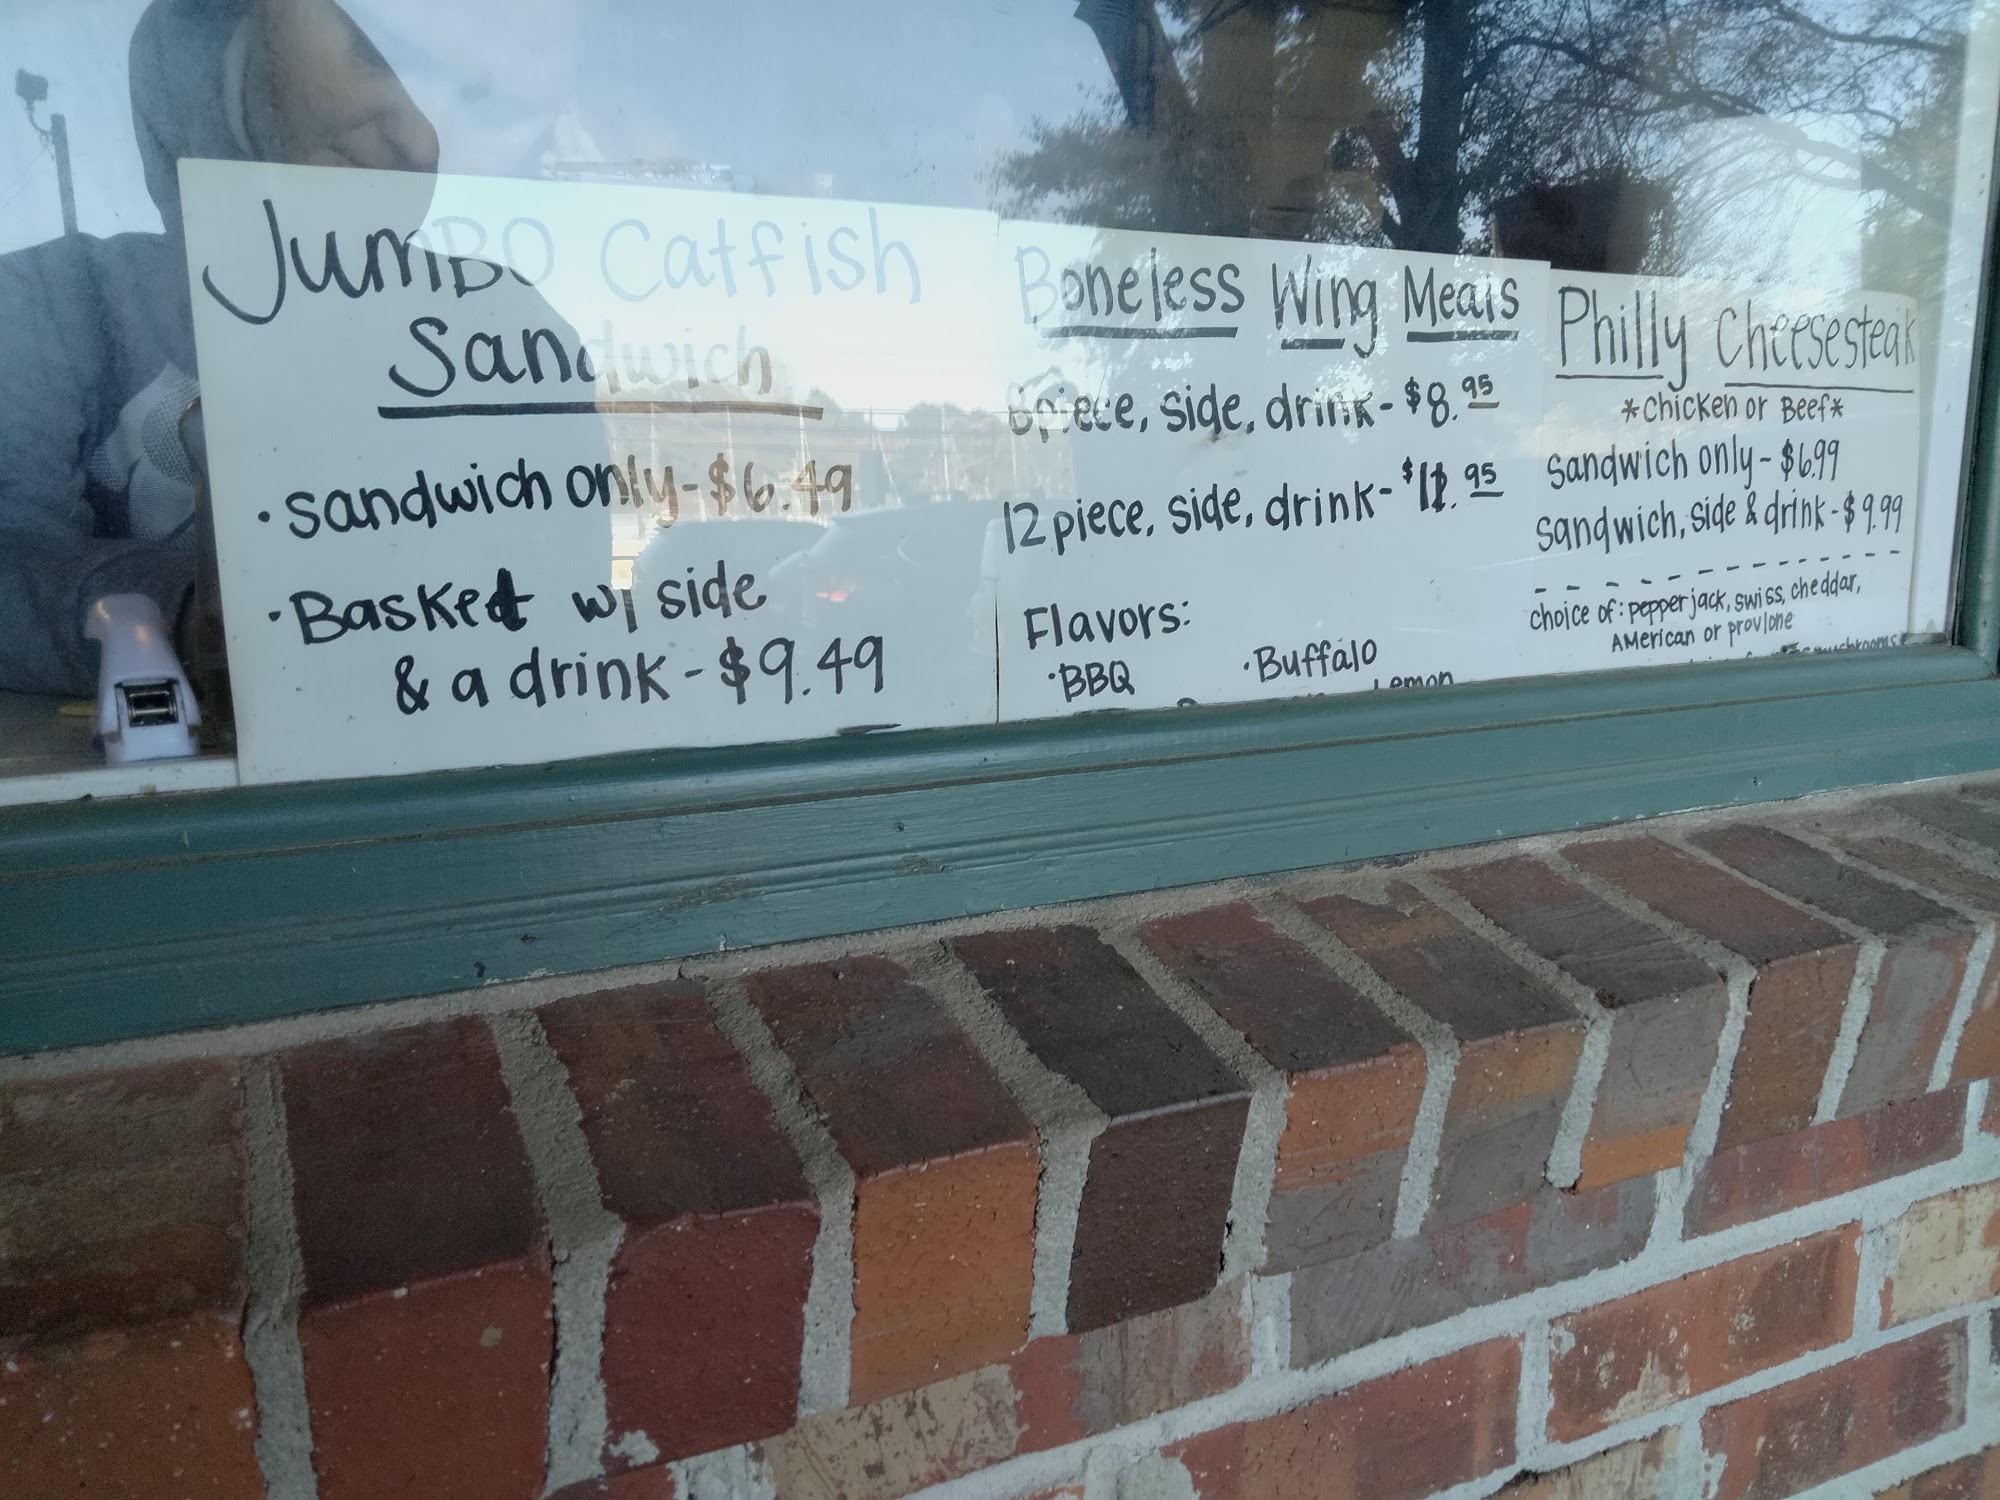 JumBO Catfish
Sandwich
• Sandwich only - $6.49
• Basket w/ side
& a drink - $9.49
Boneless Wing Meals
8piece, side, drink - $8.95
12piece, side, drink - $11.95
Flavors:
• BBQ • Buffalo
Lemon
Philly Cheesesteak
*Chicken or Beef*
Sandwich only - $6.99
Sandwich, side & drink - $9.99
choice of: pepperjack, swiss, cheddar,
American or provlone
mushrooms